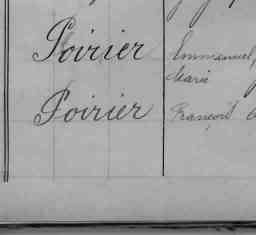 Poirier Emmanuel,
Marie
Poirier François